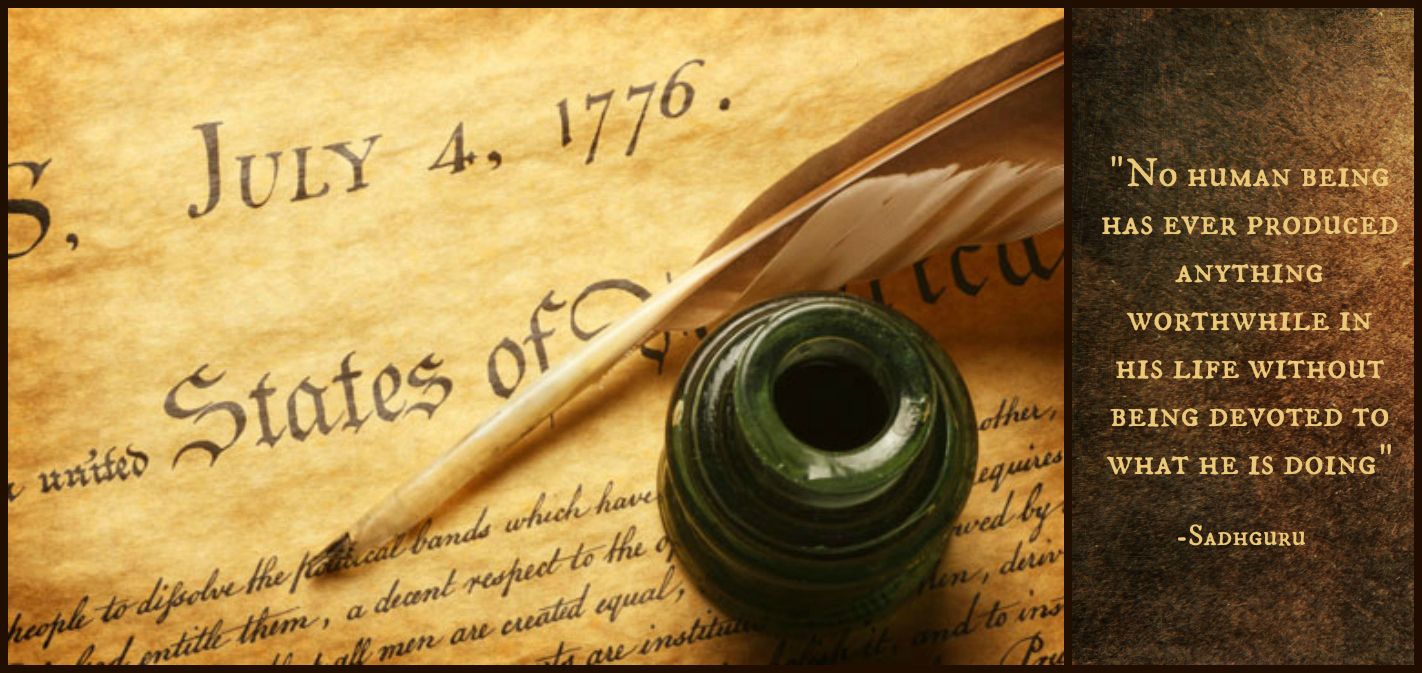 S, July 4, 1776.
united States of
people to dissolve the political bands which have
other,
entitle them, a decent respect to the
equires
all men are created equal,
wed by
are institu
men, deriv
abolish it, and to ins
"No human being
has ever produced
anything
worthwhile in
his life without
being devoted to
what he is doing"
-Sadhguru